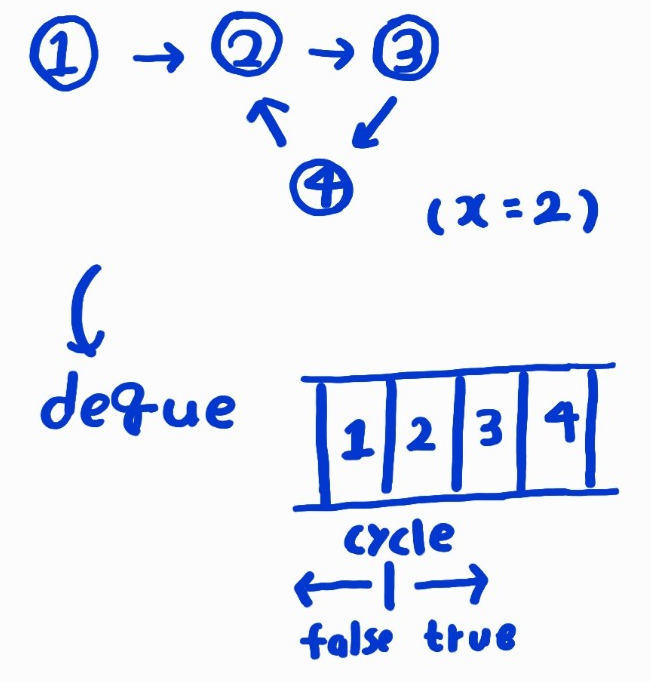 1 → 2 → 3
4
(x = 2)
deque
1 2 3 4
cycle
false true